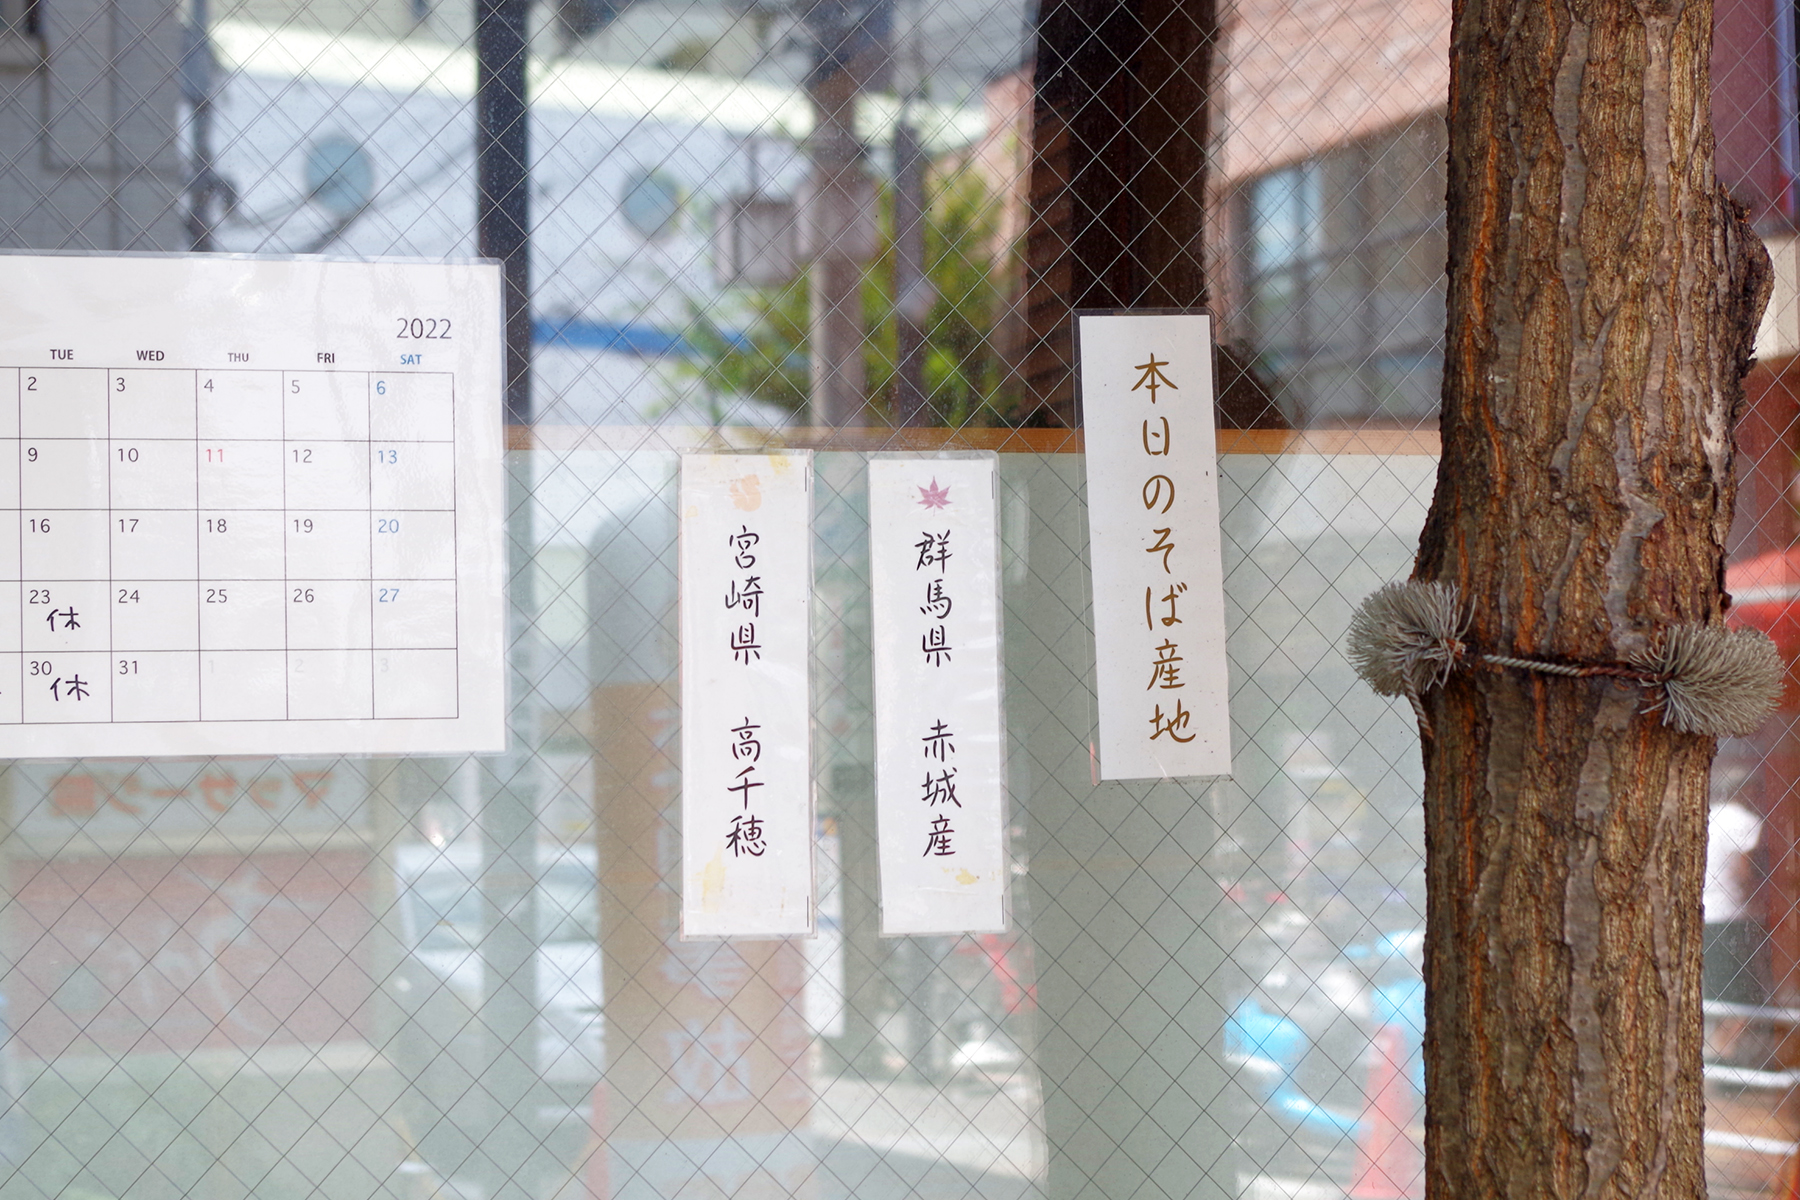 2022
TUE WED THU FRI SAT
2 3 4 5 6
9 10 11 12 13
16 17 18 19 20
23 休 24 25 26 27
30 休 31 1 2 3
本日のそば産地
群馬県 赤城産
宮崎県 高千穂
マッサージ